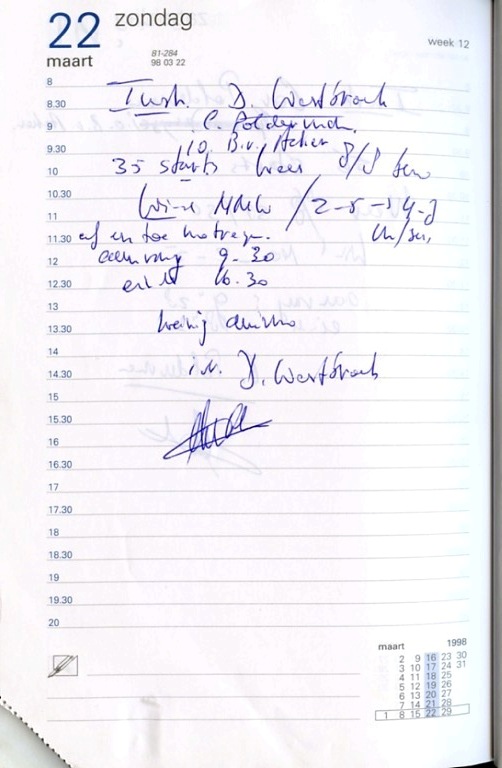 22 zondag
maart
81-284
98 03 22
week 12
8
8.30 Instr. D. Westbroek
9 C. Polderman
9.30 I.O. B.v.
10 35 starts Weer
10.30 Wind NNW / 2-5 → 4-8
11 M/sec,
11.30 af en toe motregen.
12 aanvang 9.30
12.30 einde 16.30
13
13.30 weinig
14
14.30 i.v. D. Westbroek
15
15.30
16
16.30
17
17.30
18
18.30
19
19.30
20
maart 1998
2 9 16 23 30
3 10 17 24 31
4 11 18 25
5 12 19 26
6 13 20 27
7 14 21 28
1 8 15 22 29